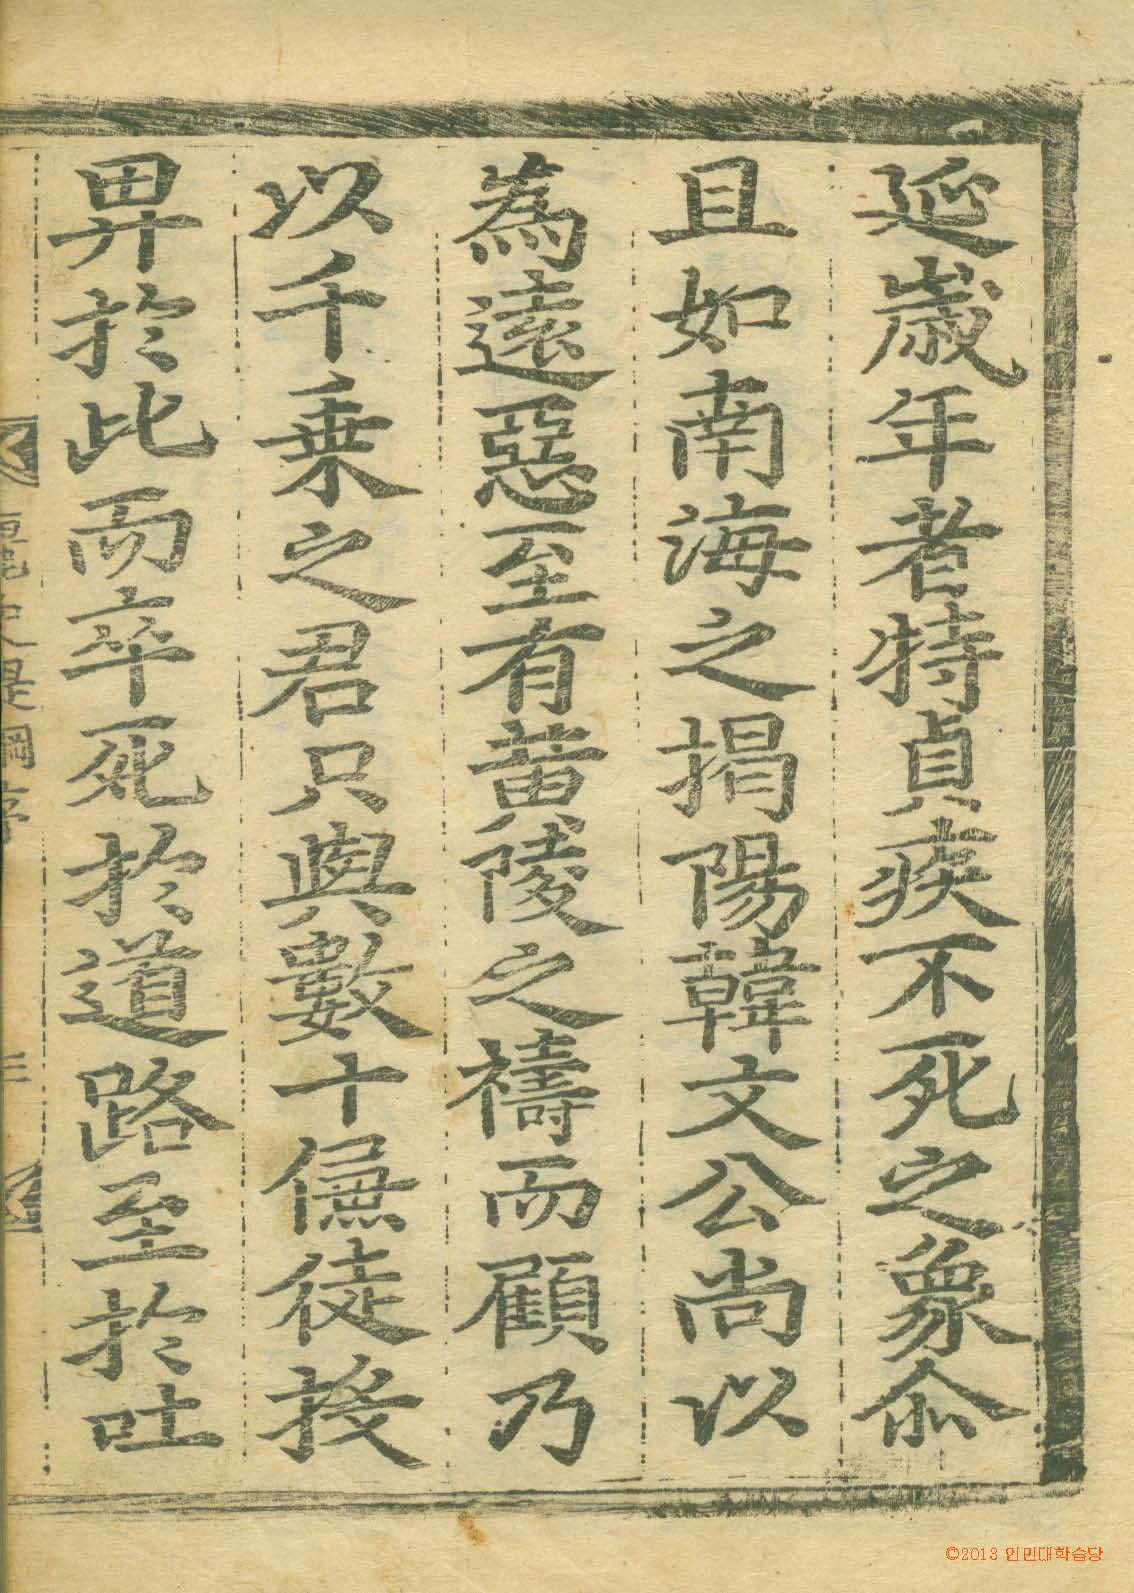 延歲年者特貞疾不死之象尒
且如南海之揭陽韓文公尚以
為遠惡至有黃陵之禱而顧乃
以千乗之君只與數十儓徒投
畀於此而卒死於道路至於吐
麗史提綱序
三
©2013 인민대학습당